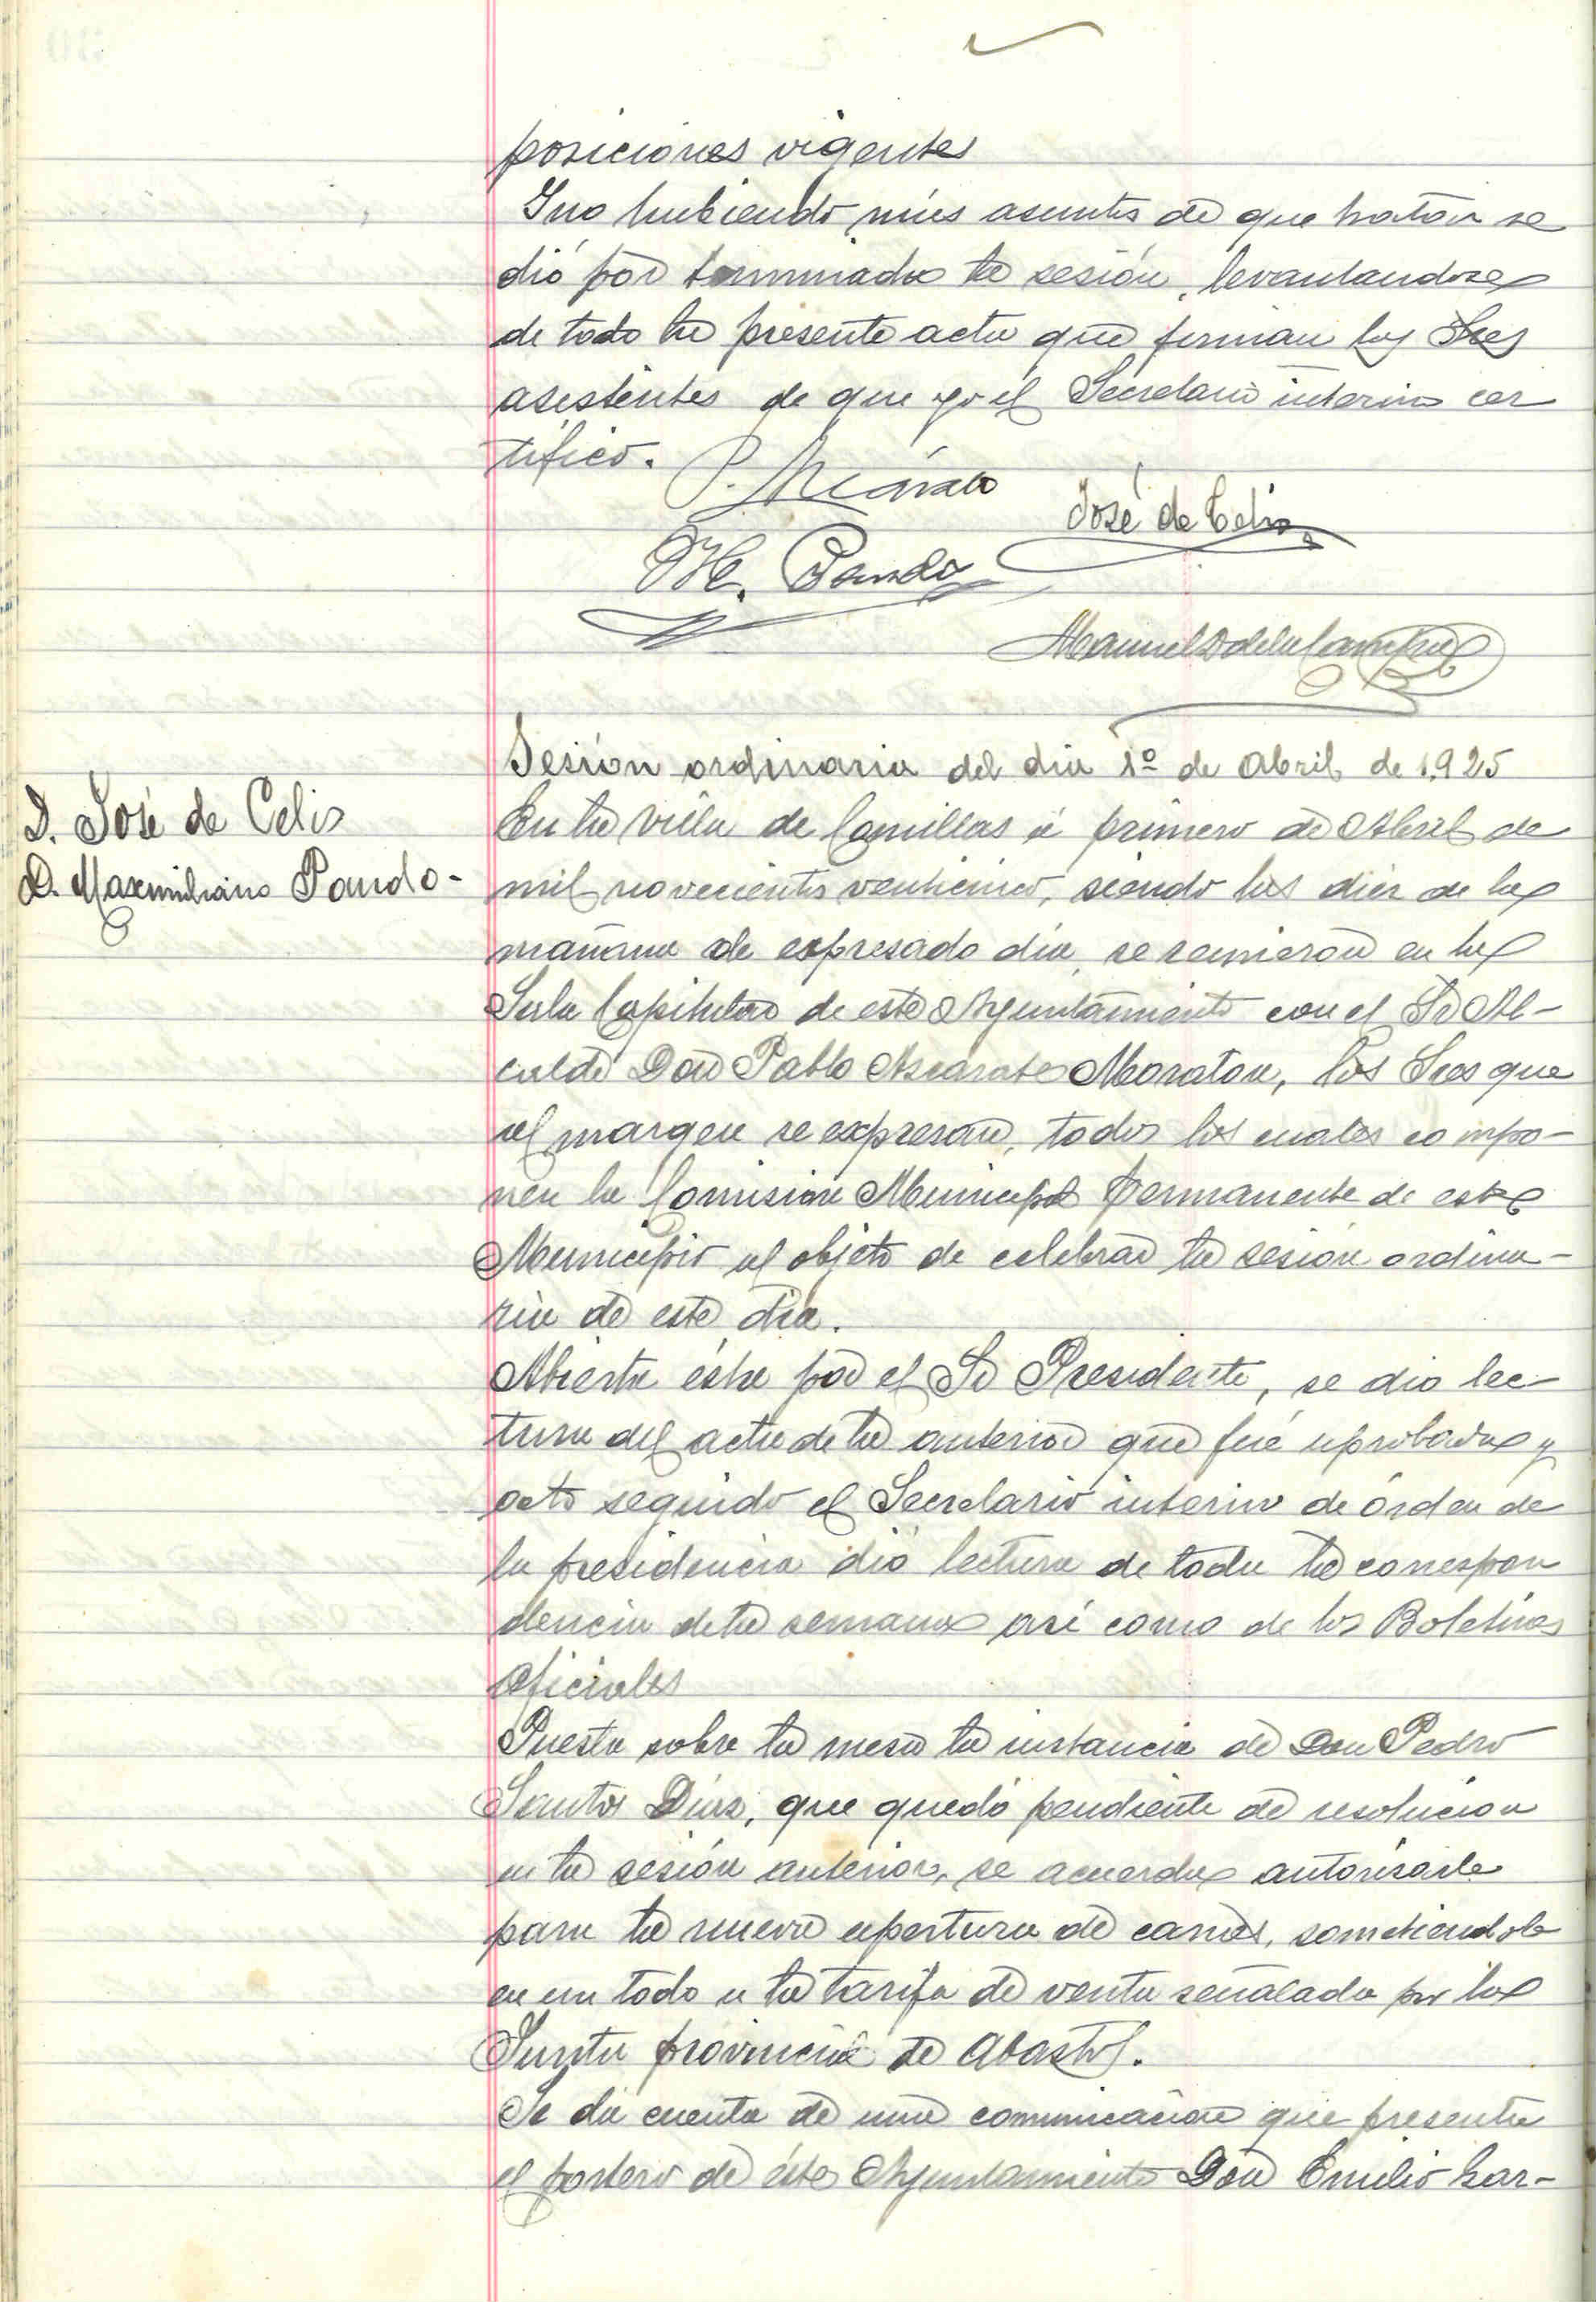 posiciones vigentes
Y no hubiendo más asuntos de que tratar se
dió por terminada la sesión, levantandose
de todo la presente acta que firman los Sres
asistentes de que yo el Secretario interino cer
tifico.
P. Azcárate
José de Celis
M. Pando
Manuel D de la Campa
Sesion ordinaria del dia 1º de Abril de 1925
D. José de Celis
D. Maxemiliano Pando-
En la villa de Comillas á primero de Abril de
mil novecientos venticinco, siendo las diez de la
mañana de expresado dia, se reunieron en la
Sala Capitular de este Ayuntamiento con el Sr Al-
calde Don Pablo Azcarate Moraton, los Sres que
al margen se expresan, todos los cuales compo-
nen la Comision Municipal Permanente de este
Municipio al objeto de celebrar la sesión ordina-
ria de este dia.
Abierta ésta por el Sr Presidente, se dio lec-
tura del acta de la anterior que fué aprobada y
acto seguido el Secretario interino de órden de
la presidencia dió lectura de toda la correspon
dencia de la semana asi como de los Boletines
oficiales
Puesta sobre la mesa la instancia de Don Pedro
Santos Diaz, que quedó pendiente de resolucion
en la sesión anterior, se acuerda autorizarle
para la nueva apertura de carnes, sometiendole
en un todo a la tarifa de venta señalada por la
Junta provincial de Abastos.
Se da cuenta de una comunicacion que presenta
el portero de éste Ayuntamiento Don Emilio Gar-